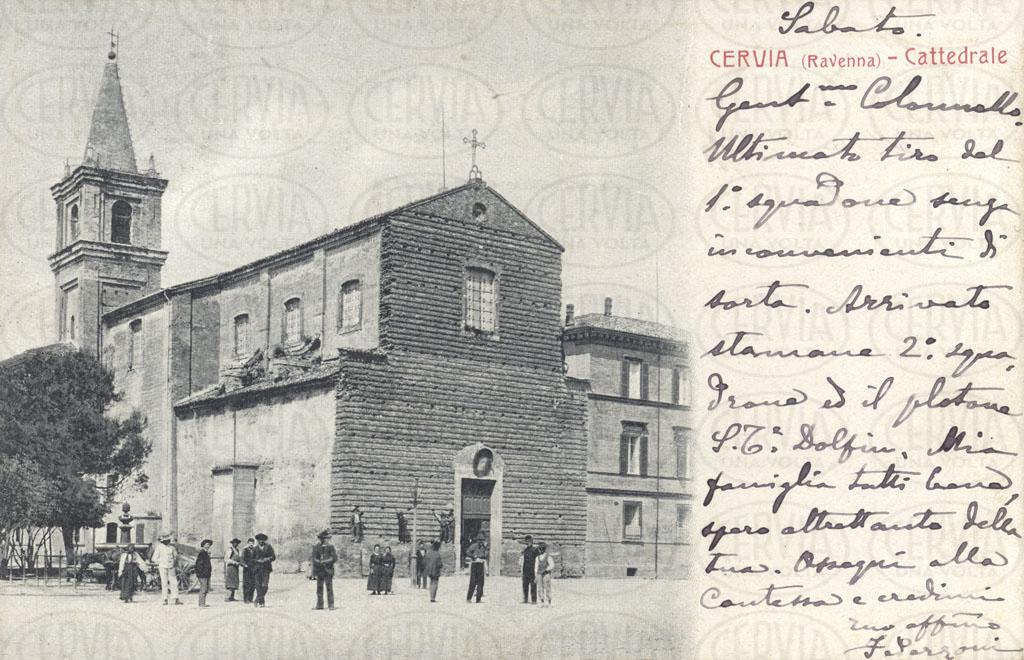 Sabato.
CERVIA (Ravenna) - Cattedrale
Gent.mo Colonnello,
Ultimato tiro del
1º squadrone senza
inconvenienti di
sorta. Arrivato
stamane 2º squa
drone ed il plotone
S.T.e Dolfin. Mia
famiglia tutti bene,
spero altrettanto della
tua. Ossequi alla
Contessa e credimi
tuo affmo
CERVIA
UNA VOLTA